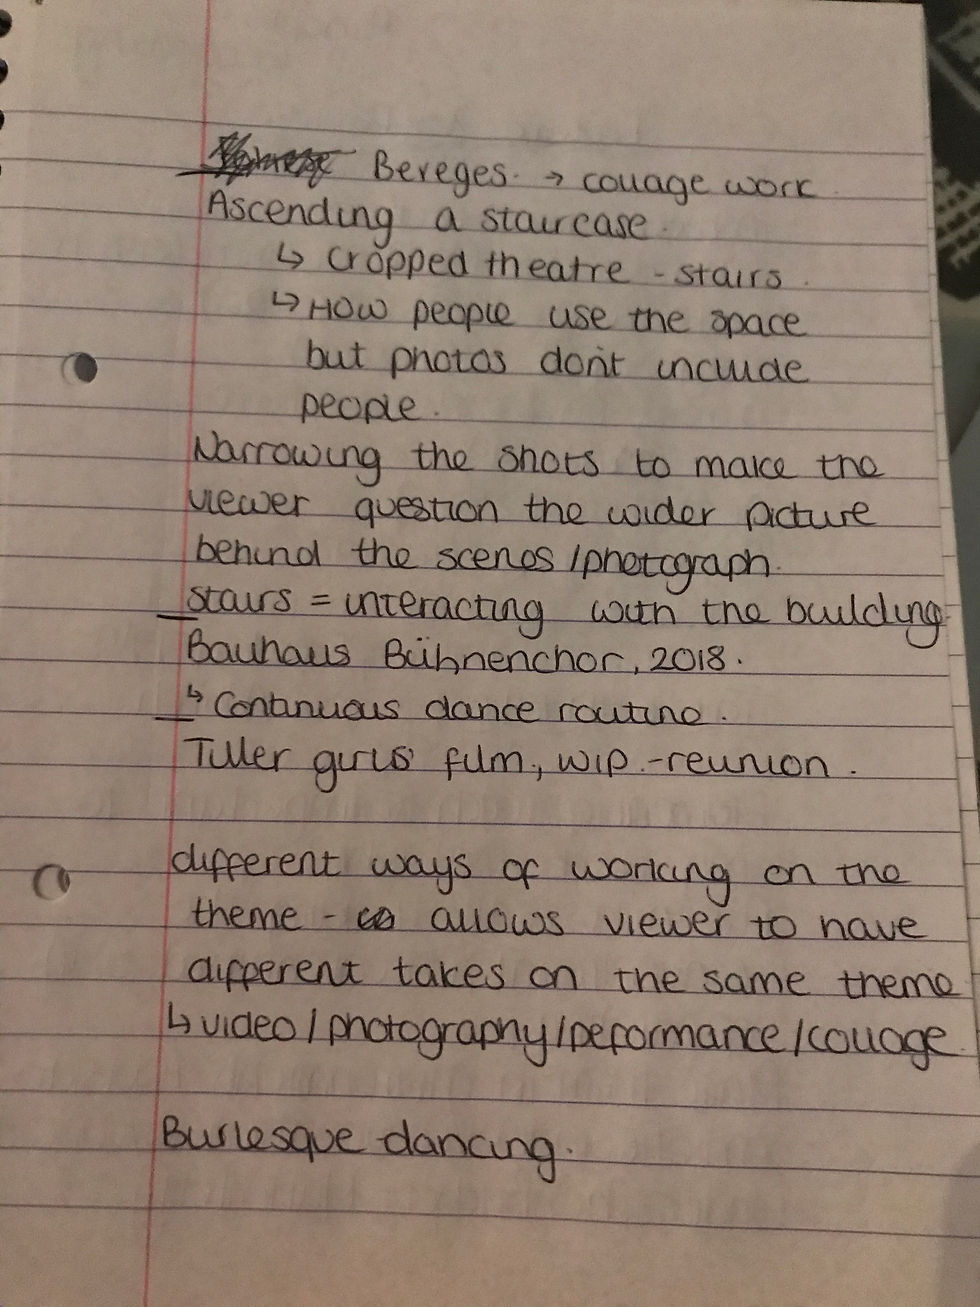 Bereges. → collage work.
Ascending a staircase.
↳ cropped theatre - stairs.
↳ How people use the space
but photos don't include
people.
Narrowing the shots to make the
viewer question the wider picture
behind the scenes/photograph.
stairs = interacting with the building.
Bauhaus Bühnenchor, 2018.
↳ Continuous dance routine.
Tiller girls' film, WIP.-reunion.
different ways of working on the
theme - allows viewer to have
different takes on the same theme
↳ video/photography/peformance/collage.
Burlesque dancing.